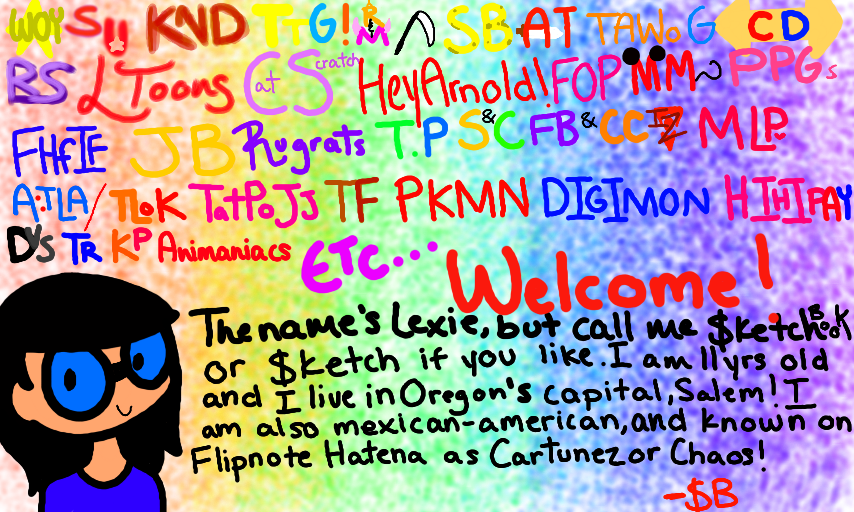 WOY SU KND TTG! B&M SB AT TAWoG CD
BS LToons CatScratch HeyArnold! FOP MM PPGs
FHfIF JB Rugrats T.P S&C FB&CC IZ MLP
A:TLA/TLoK TatPoJJ TF PKMN DIGIMON HIHIPAY
DVS TR KP Animaniacs ETC... Welcome!
The name's Lexie, but call me $ketchBook
or $ketch if you like. I am 11 yrs old
and I live in Oregon's capital, Salem! I
am also mexican-american, and known on
Flipnote Hatena as Cartunez or Chaos!
-$B